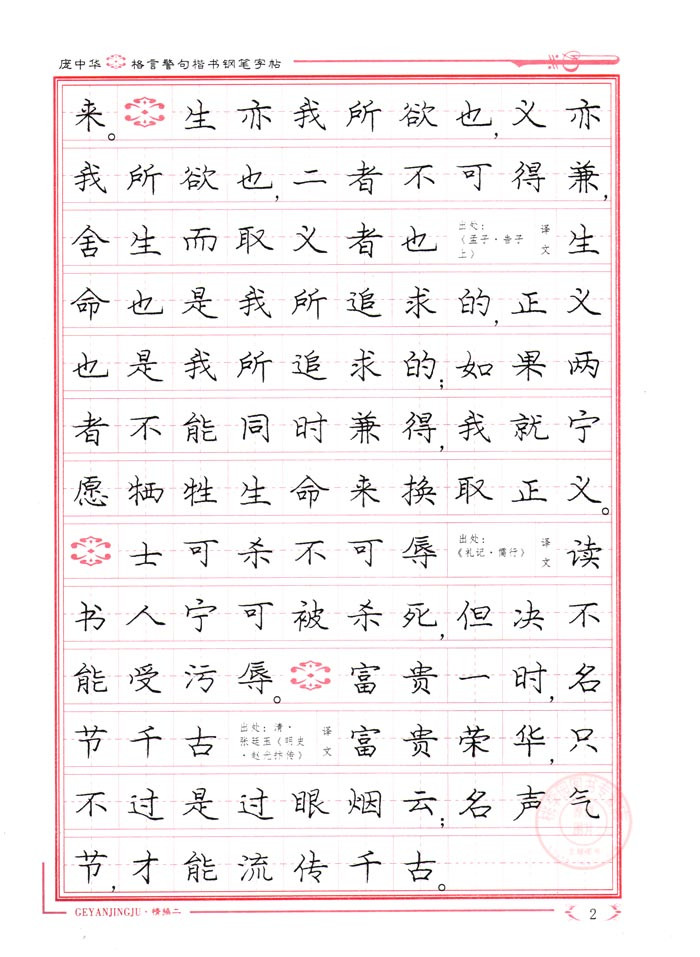 庞中华 格言警句楷书钢笔字帖
来。 生亦我所欲也,义亦
我所欲也,二者不可得兼,
舍生而取义者也 出处:《孟子·告子上》 译文 生
命也是我所追求的,正义
也是我所追求的;如果两
者不能同时兼得,我就宁
愿牺牲生命来换取正义。
士可杀不可辱 出处:《礼记·儒行》 译文 读
书人宁可被杀死,但决不
能受污辱。 富贵一时,名
节千古 出处:清·张廷玉《明史·赵光抃传》 译文 富贵荣华,只
不过是过眼烟云;名声气
节,才能流传千古。
GEYANJINGJU·精编二
2